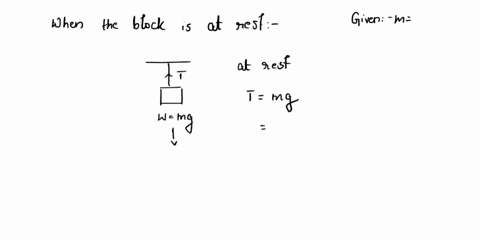 When the block is at rest:-
Given:- m=
T
at rest
T = mg
W = mg
=